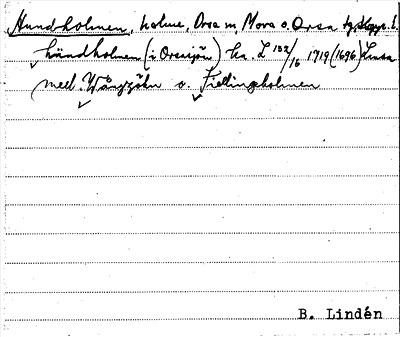 Hundholmen, holme, Orsa sn, Mora o. Orsa tg, Kopp. l.
hündholmen (i Orsasjön) ha. L 152/16 1719 (1696) Lmsa
med. Wångsjön o. Fiellingholmen
B. Lindén